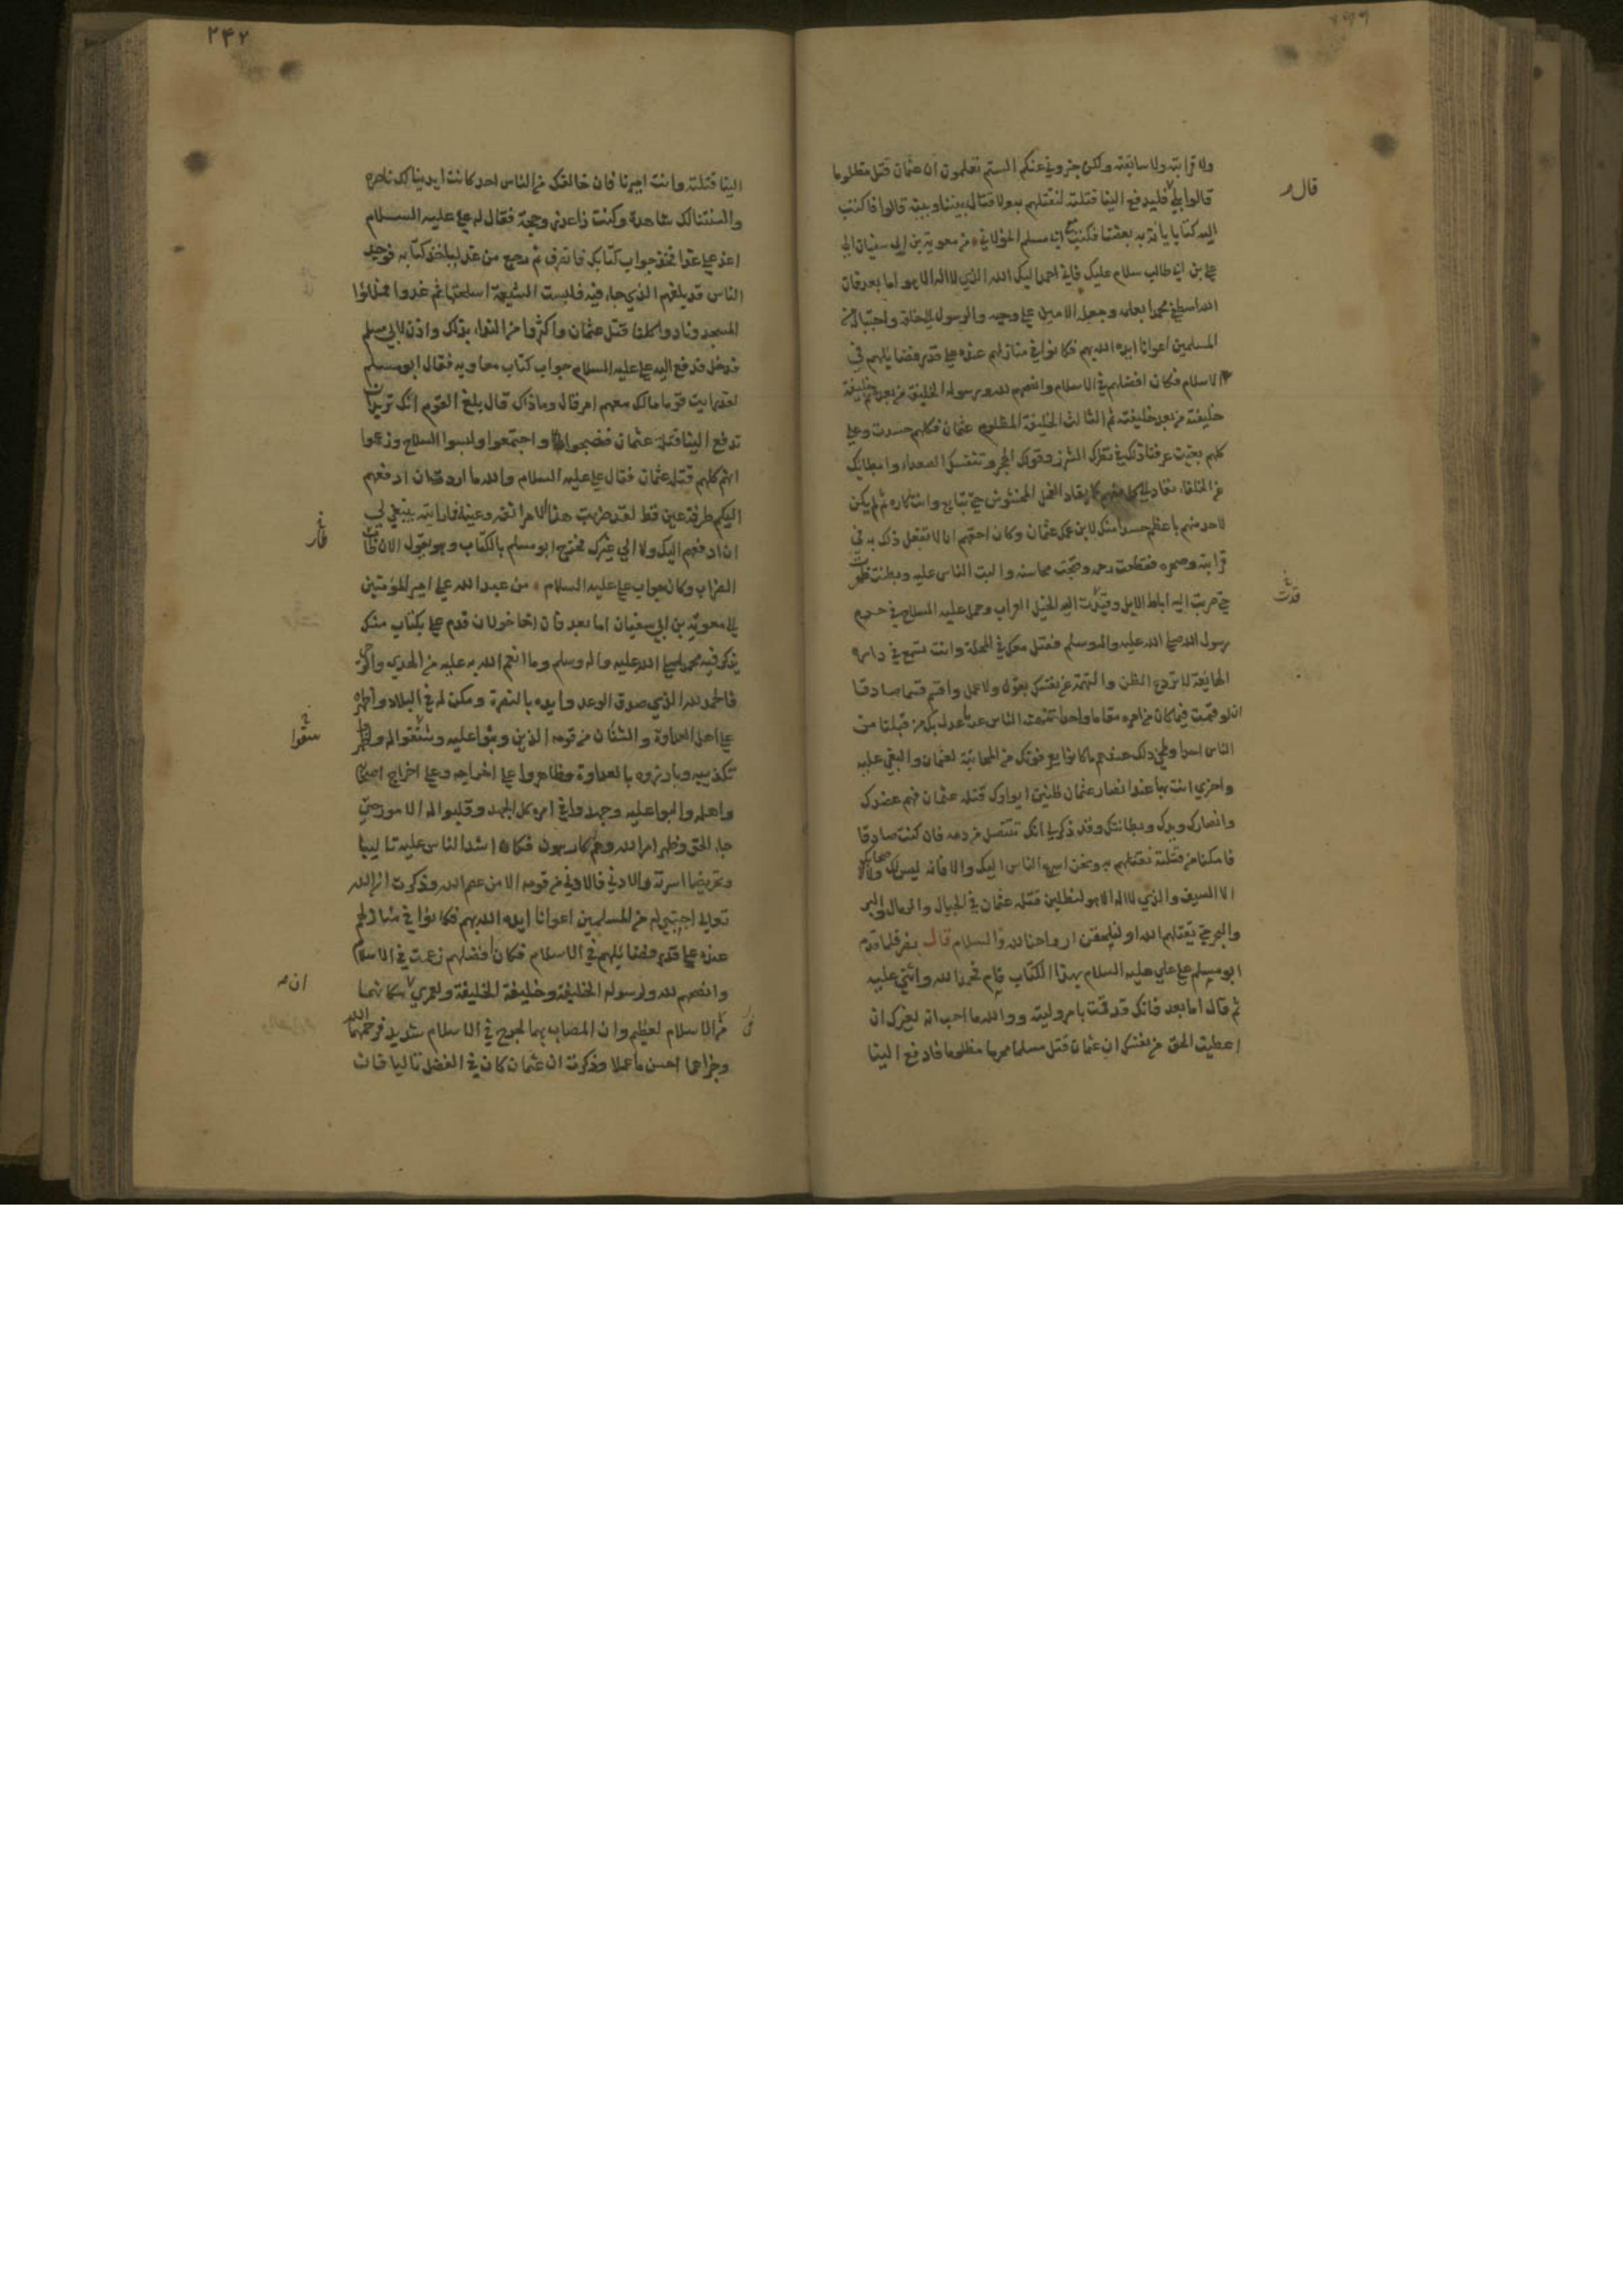 ولا قرابته ولا سابقته ولكن خبروني عنكم الستم تعلمون ان عثمان قتل مظلوما
قال
قالوا بلى فليدفع الينا قتلته لنقتلهم به ولا قتال بيننا وبينه قالوا فاكتب
اليه كتابا يأته به بعضنا فكتب ابى مسلم الخولاني من معوية بن ابي سفيان الى
علي بن ابي طالب سلام عليك فاني احمد اليك الله الذي لا اله الا هو اما بعد فان
الله اصطفى محمدا بعلمه وجعله الامين على وحيه والرسول الى خلقه واجتبى له من
المسلمين اعوانا ايده الله بهم فكانوا في منازلهم عنده على قدر فضايلهم في
الاسلام فكان افضلهم في الاسلام وانصحهم لله ورسوله الخليفة من بعده ثم خليفة
خليفته من بعد خليفته ثم الثالث الخليفة المظلوم عثمان فكلهم حسدت وعلى
كلهم بغيت عرفنا ذلك في نظرك الشزر وقولك الهجر وتنفسك الصعداء وابطائك
عن الخلفاء تقاد الى كل منهم كما يقاد الفحل المخشوش حتى تبايع وانت كاره ثم لم يكن
لاحد منهم باعظم حسدا منك لابن عمك عثمان وكان احقهم ان لا تفعل ذلك به في
قرابته وصهره فقطعت رحمه وقبحت محاسنه والبت الناس عليه وبطنت وظهرت
حتى ضربت اليه اباط الابل وقيدت اليه الخيل العراب وحمل عليه السلاح في حرم
قدت
رسول الله صلى الله عليه واله وسلم فقتل معك في المحلة وانت تسمع في داره
الهايعة لا تردع الظن والتهمة عن نفسك بقول ولا عمل واقسم قسما صادقا
ان لو قمت فيما كان من امره مقاما واحدا تنهنه الناس عنه ما عدل بك من قبلنا من
الناس احدا ولمحى ذلك عندهم ما كانوا يعرفونك من المجانبة لعثمان والبغي عليه
واخرى انت بها عند انصار عثمان ظنين ايواؤك قتلة عثمان فهم عضدك
وانصارك ويدك وبطانتك وقد ذكر لي انك تتنصل من دمه فان كنت صادقا
فامكنا من قتلته نقتلهم به ونحن اسرع الناس اليك والا فانه ليس لك ولا لاصحابك
الا السيف والذي لا اله الا هو لنطلبن قتلة عثمان في الجبال والرمال والبر
والبحر حتى يقتلهم الله او لتلحقن ارواحنا لله والسلام قال نصر فلما قدم
ابو مسلم على علي عليه السلام بهذا الكتاب قام فحمد الله واثنى عليه
ثم قال اما بعد فانك قد قمت بامر وليته ووالله ما احب انه لغيرك ان
اعطيت الحق من نفسك ان عثمان قتل مسلما محرما مظلوما فادفع الينا
٢٤٢
الينا قتلته وانت اميرنا فان خالفك من الناس احد كانت ايدينا لك ناصرة
والسنتنا لك شاهدة وكنت ذا عذر وحجة فقال له علي عليه السلام
اغد علي غدا فخذ جواب كتابك فانصرف ثم رجع من غد لياخذ كتابه فوجد
الناس قد بلغهم الذي جاء فيه فلبست الشيعة اسلحتها ثم غدوا فملاوا
المسجد ونادوا كلنا قتل عثمان واكثروا من النداء بذلك واذن لابي مسلم
فدخل فدفع اليه علي عليه السلام جواب كتاب معاويه فقال ابو مسلم
لقد رايت قوما مالك معهم امر قال وما ذاك قال بلغ القوم انك تريد ان
تدفع الينا قتلة عثمان فضجوا واجتمعوا ولبسوا السلاح وزعموا
انهم كلهم قتلة عثمان فقال علي عليه السلام والله ما اردت ان ادفعهم
اليكم طرفة عين قط لقد ضربت هذا الامر انفه وعينه فما رايته ينبغي لي
ان ادفعهم اليك ولا الى غيرك فخرج ابو مسلم بالكتاب وهو يقول الان طاب
الضراب وكان جواب علي عليه السلام من عبد الله علي امير المؤمنين
الى معوية بن ابي سفيان اما بعد فان اخا خولان قدم علي بكتاب منك
يذكر فيه محمدا صلى الله عليه واله وسلم وما انعم الله به عليه من الهدى والوحى
فالحمد لله الذي صدق الوعد وايده بالنصرة ومكن له في البلاد واظهره
على اهل العداوة والشنان من قومه الذين وثبوا عليه وشنفوا له واظهروا
تكذيبه وبارزوه بالعداوة وظاهروا على اخراجه وعلى اخراج اصحابه
واهله والبوا عليه وجهدوا في امره كل الجهد وقلبوا له الامور حتى
جاء الحق وظهر امر الله وهم كارهون فكان اشد الناس عليه تاليبا
وتحريضا اسرته والادنى فالادنى من قومه الا من عصم الله وذكرت ان الله
تعالى اجتبى له من المسلمين اعوانا ايده الله بهم فكانوا في منازلهم
عنده على قدر فضايلهم في الاسلام فكان افضلهم زعمت في الاسلام
وانصحهم لله ولرسوله الخليفة وخليفة الخليفة ولعمري مكانهما
ان
من الاسلام لعظيم وان المصاب بهما لجرح في الاسلام شديد فرحمهما الله
وجزاهما احسن ما عملا وذكرت ان عثمان كان في الفضل تاليا فان